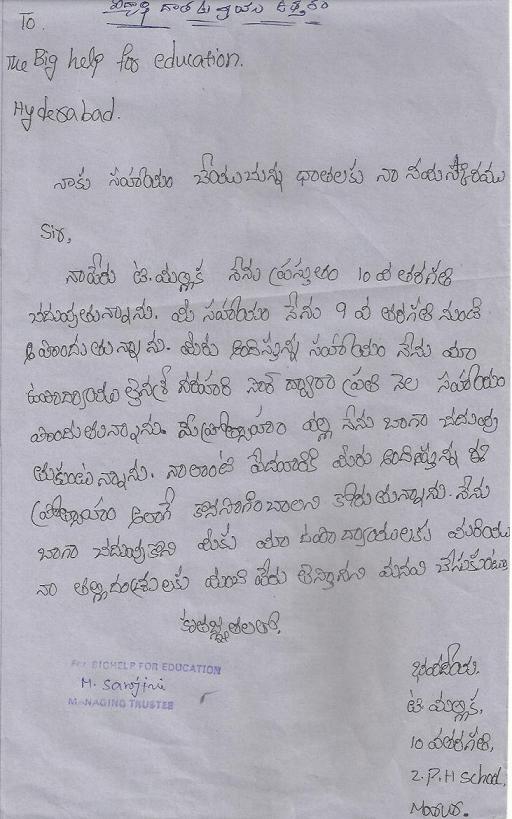 విద్యార్థి దాతకు వ్రాయు ఉత్తరం
To.
The Big help for education.
Hyderabad.
నాకు సహాయం చేయుచున్న దాతలకు నా నమస్కారము
Sir,
నాపేరు టి.మల్లిక నేను ప్రస్తుతం 10 వ తరగతి
చదువుతున్నాను. మీ సహాయం నేను 9 వ తరగతి నుండి
పొందుతున్నాను. మీరు అందిస్తున్న సహాయం నేను మా
ఉపాధ్యాయులు సార్ ద్వారా ప్రతి నెల సహాయం
పొందుతున్నాను. మీప్రోత్సాహం వల్ల నేను బాగా చదువు
తుకుంటున్నాను. నాలాంటి పేదవారికి మీరు అందిస్తున్న ఈ
ప్రోత్సాహం ఇలాగే కొనసాగించాలని కోరుతున్నాను. నేను
బాగా చదువుకొని మీకు మా ఉపాధ్యాయులకు మరియు
నా తల్లిదండ్రులకు మంచి పేరు తెస్తానని మనవి చేసుకుంటూ
కృతజ్ఞతలతో.
For BIGHELP FOR EDUCATION
M. Sarojini
MANAGING TRUSTEE
భవదీయ.
టి మల్లిక,
10 వతరగతి,
Z.P.H School,